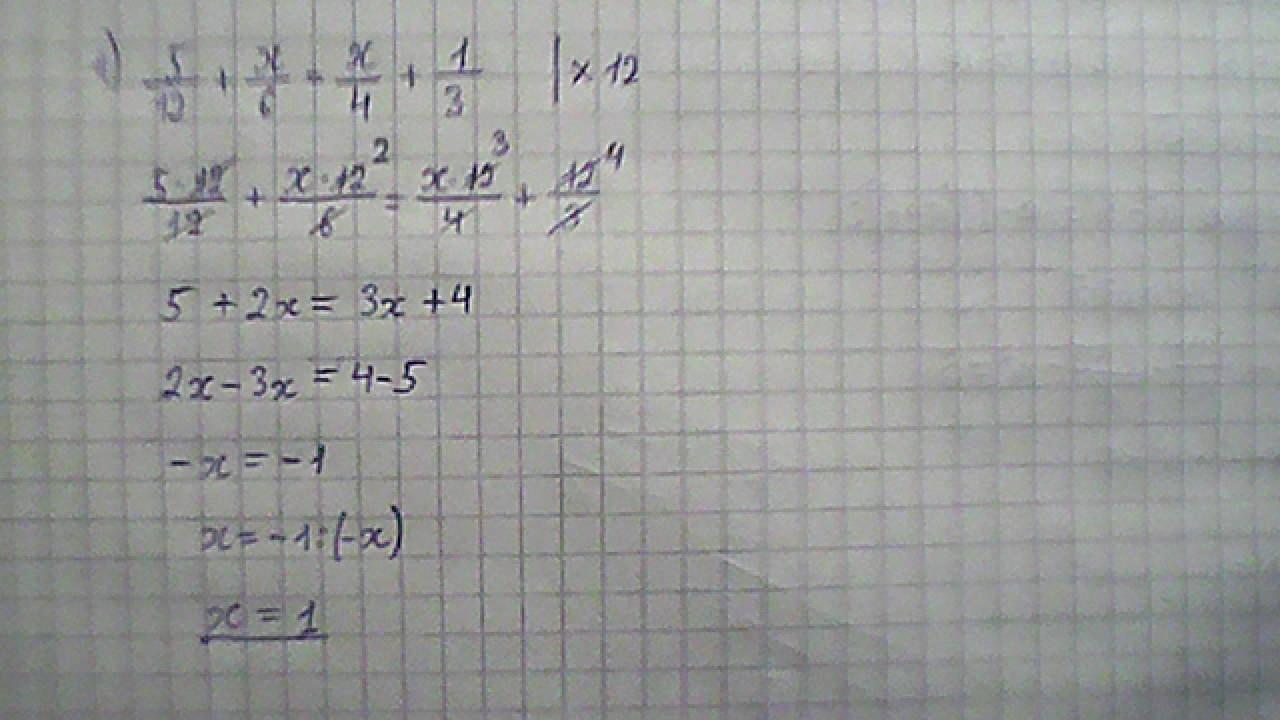 5/12 + x/6 = x/4 + 1/3 | × 12
5·12/12 + x·12²/6 = x·12³/4 + 12⁴/3
5 + 2x = 3x + 4
2x - 3x = 4 - 5
-x = -1
x = -1 : (-x)
x = 1